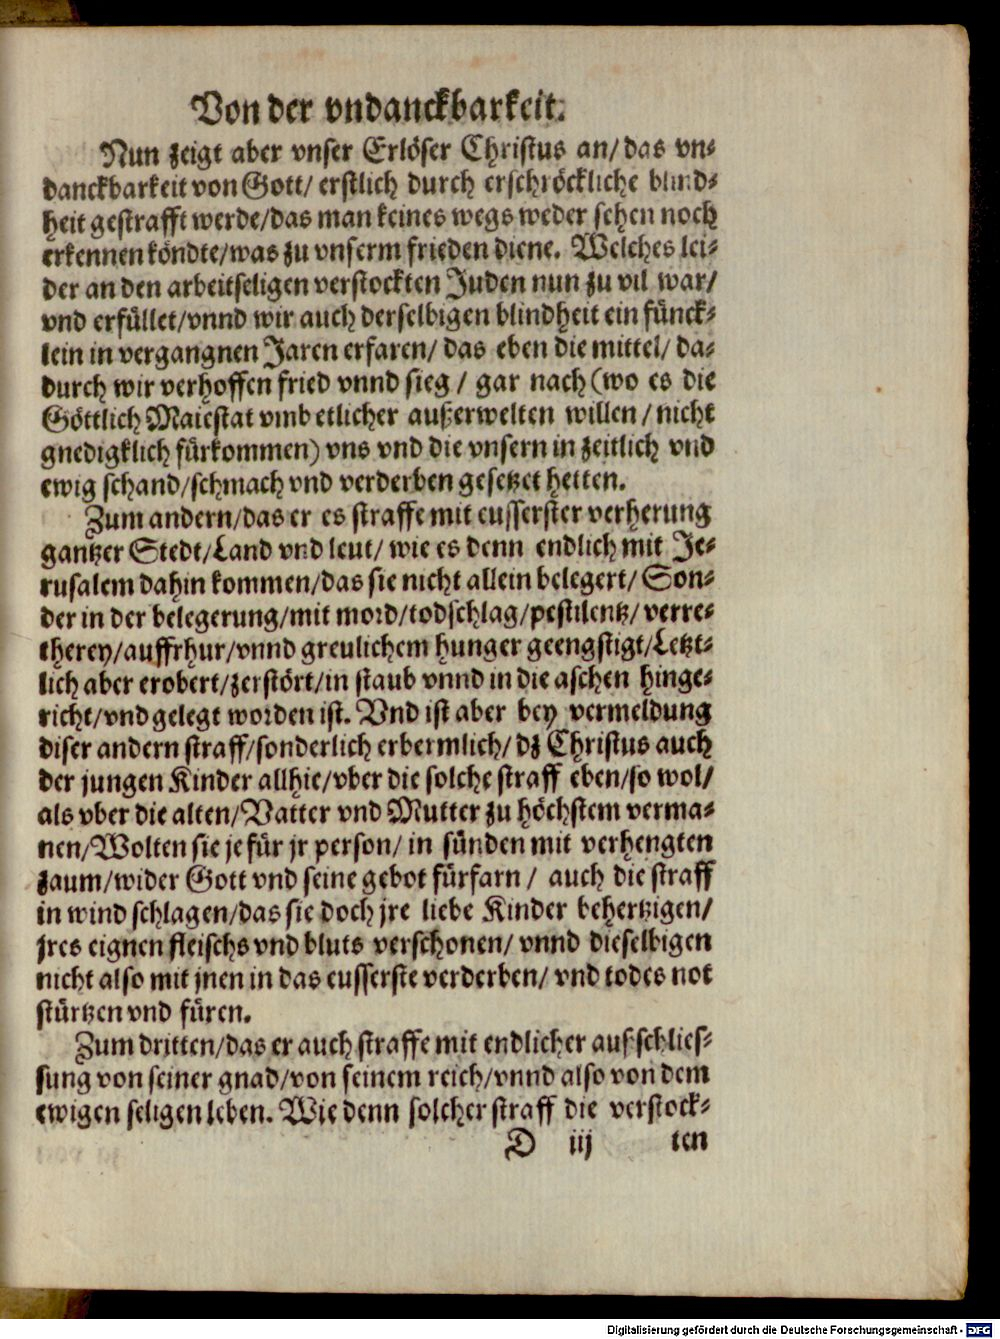 Von der vndanckbarkeit.
Nun zeigt aber vnser Erlöser Christus an/ das vn-
danckbarkeit von Gott/ erstlich durch erschröckliche blind-
heit gestrafft werde/das man keines wegs weder sehen noch
erkennen köndte/was zu vnserm frieden diene. Welches lei-
der an den arbeitseligen verstockten Juden nun zu vil war/
vnd erfüllet/vnnd wir auch derselbigen blindheit ein fünck-
lein in vergangnen Jaren erfaren/ das eben die mittel/ da-
durch wir verhoffen fried vnnd sieg / gar nach (wo es die
Göttlich Maiestat vmb etlicher außerwelten willen / nicht
gnedigklich fürkommen) vns vnd die vnsern in zeitlich vnd
ewig schand/schmach vnd verderben gesetzet hetten.
Zum andern/das er es straffe mit eusserster verherung
gantzer Stedt/Land vnd leut/ wie es denn endlich mit Je-
rusalem dahin kommen/das sie nicht allein belegert/ Son-
der in der belegerung/mit mord/todschlag/pestilentz/ verre-
therey/auffrhur/vnnd greulichem hunger geengstigt/Letzt-
lich aber erobert/zerstört/in staub vnnd in die aschen hinge-
richt/vnd gelegt worden ist. Vnd ist aber bey vermeldung
diser andern straff/sonderlich erbermlich/ dz Christus auch
der jungen Kinder allhie/vber die solche straff eben/so wol/
als vber die alten/Vatter vnd Mutter zu höchstem verma-
nen/Wolten sie je für jr person/ in sünden mit verhengten
zaum/wider Gott vnd seine gebot fürfarn / auch die straff
in wind schlagen/das sie doch jre liebe Kinder behertzigen/
jres eignen fleischs vnd bluts verschonen/ vnnd dieselbigen
nicht also mit jnen in das eusserste verderben/ vnd todes not
stürtzen vnd füren.
Zum dritten/das er auch straffe mit endlicher aufschlies-
sung von seiner gnad/von seinem reich/vnnd also von dem
ewigen seligen leben. Wie denn solcher straff die verstock-
D iij ten
Digitalisierung gefördert durch die Deutsche Forschungsgemeinschaft - DFG